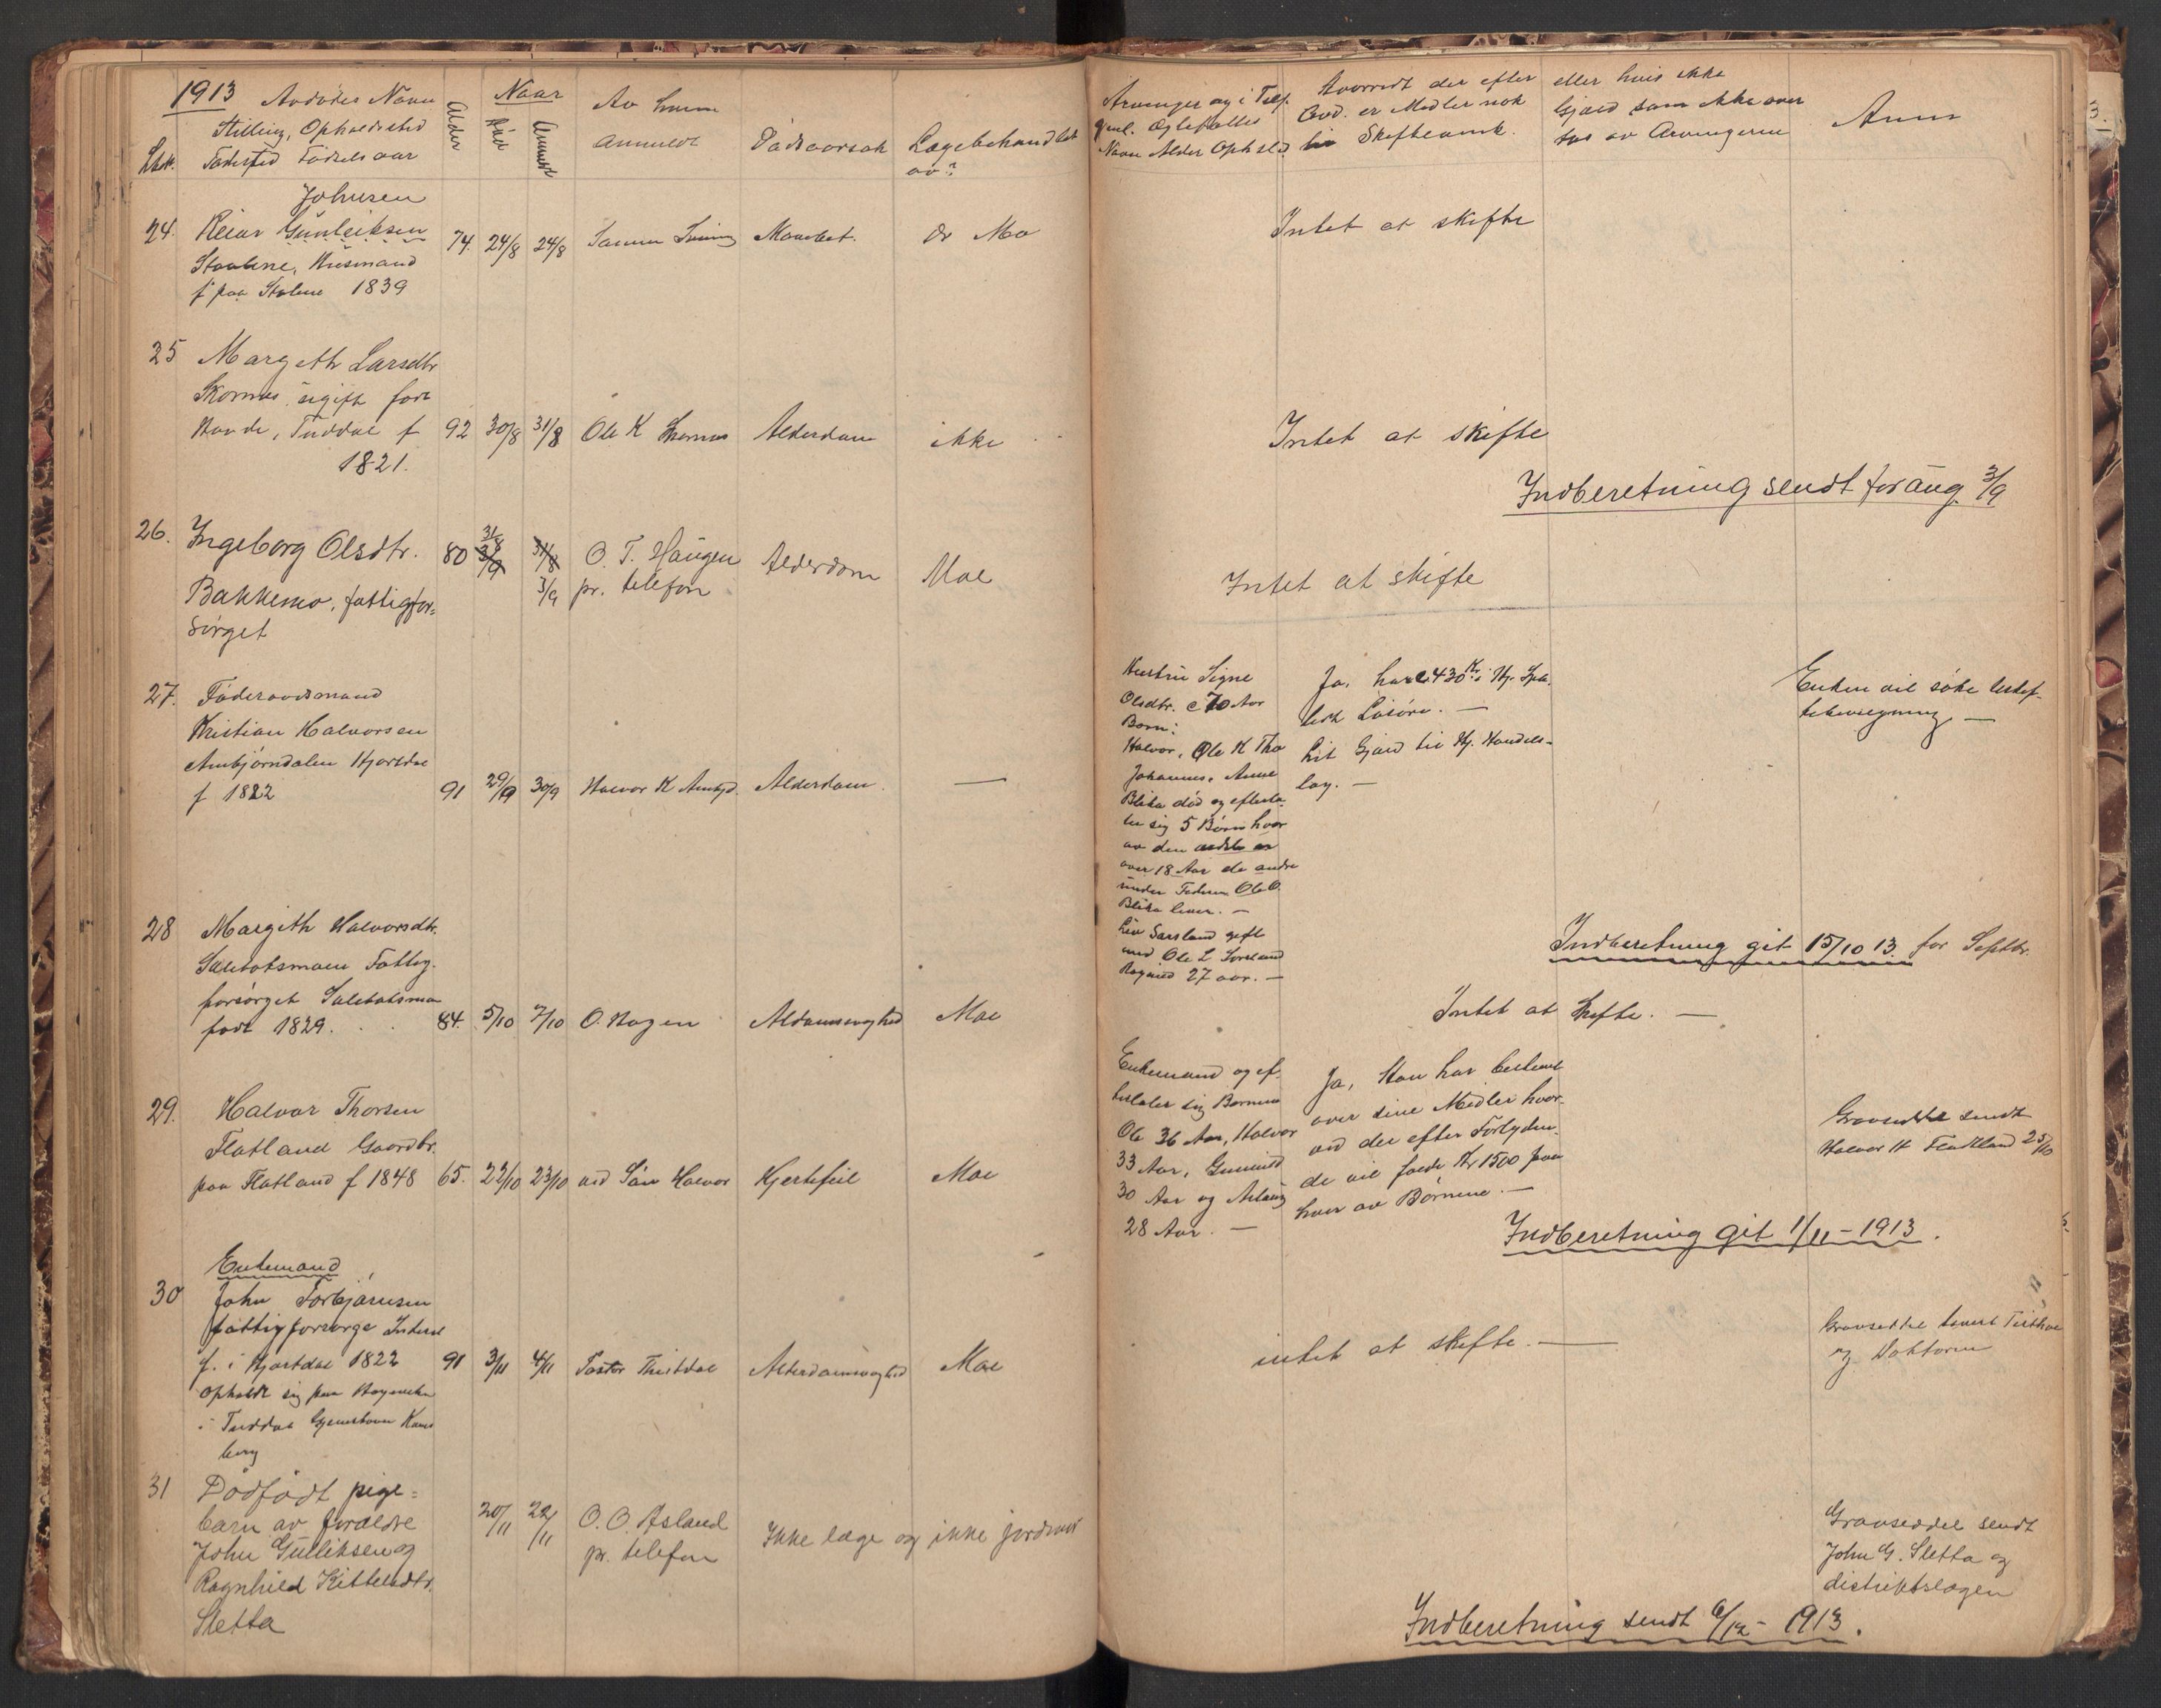 1913 Avdødes Navn
Stilling, Opholdssted
Fødested Fødselsaar
Alder
Naar
Død
Anmeldt
Av hvem
anmeldt
Dødsaarsak
Lægebehandlet
av?
Arvinger og i Tilf.
Navn Alder Ophold.
Hvorvidt der efter
Avd. er Midler nok
til Skifteomk.
eller hvis ikke
Gjæld som ikke over
tas av Arvingerne
Anm
Johnsen
24. Reiar Gunleiksen
Husmand
f paa 1839
74. 24/8 24/8
Dr Mo
Intet at skifte
25 Margeth Larsdtr
Skornes ugift før
Tuddal f
1821.
92 30/8 31/8 Ole K Skornes Alderdom ikke
Intet at skifte
Indberetning sendt for aug. 3/9
26. Ingeborg Olsdtr.
Bakkemo, fattigfor=
sørget
80 31/8 3/9
31/8 3/9
O. T. Haugen
pr. telefon
Alderdom Moe
Intet at skifte
27. Føderaadsmand
Kristian Halvorsen
Ambjørndalen Hjartdal
f 1822
91 29/9 30/9 Halvor K Ambjd. Alderdom. —
Hustru Signe
Olsdtr. c 70 Aar
Børn:
Halvor, Ole K Tho
Johannes, Anne
Blika død og efterla-
ter sig 5 Børn hvor
av den ældste er
over 18 Aar de andre
under Faderen Ole O.
Blika lever. —
Liv Sørland gift
med Ole L Sørland
Ragnild 27 aar. —
Ja, har c 430 Kr i Hj. Spa.
Løsøre. —
Lit Gjæld til Hj. Handels-
lag. —
Enken vil søke uskif-
tebevilgning —
Indberetning git 15/10 13. for Septbr.
28 Margith Halvorsdtr.
Fattig-
forsørget
født 1829.
84. 5/10 7/10 O. Hagen Alderdomsvaghed Moe
Intet at skifte. —
29. Halvor Thorsen
Flatland Gaardbr.
paa Flatland f 1848
65. 22/10 23/10 ved Søn Halvor Hjertefeil Moe
Enkemand og ef-
terlater sig Børnene
Ole 36 Aar, Halvor
33 Aar, Gunnild
30 Aar og Aslaug
28 Aar. —
Ja, Han har bestemt
over sine Midler hvor-
ved der efter Forlyden-
de vil falde Kr 1500 paa
hver av Børnene. —
Gravseddel sendt
Halvor H Flatland 25/10
Indberetning git 1/11 - 1913.
Enkemand
30 John Torbjørnsen
fattigforsørge
f. i Hjartdal 1822
opholdt sig paa
i Tuddal Hjemstavn Kons
berg
91 3/11 4/11 Pastor Thistdal Alderdomsvaghed Moe
intet at skifte. —
Gravseddel
og Doktoren
31 Dødfødt pige=
barn av forældre
John Gulliksen og
Ragnhild Kittelsdtr.
Sletta
20/11 22/11
O. O. Øsland
pr. telefon
Ikke læge og ikke jordmor
Gravseddel sendt
John G. Sletta og
distriktslægen
Indberetning sendt 6/12 - 1913.